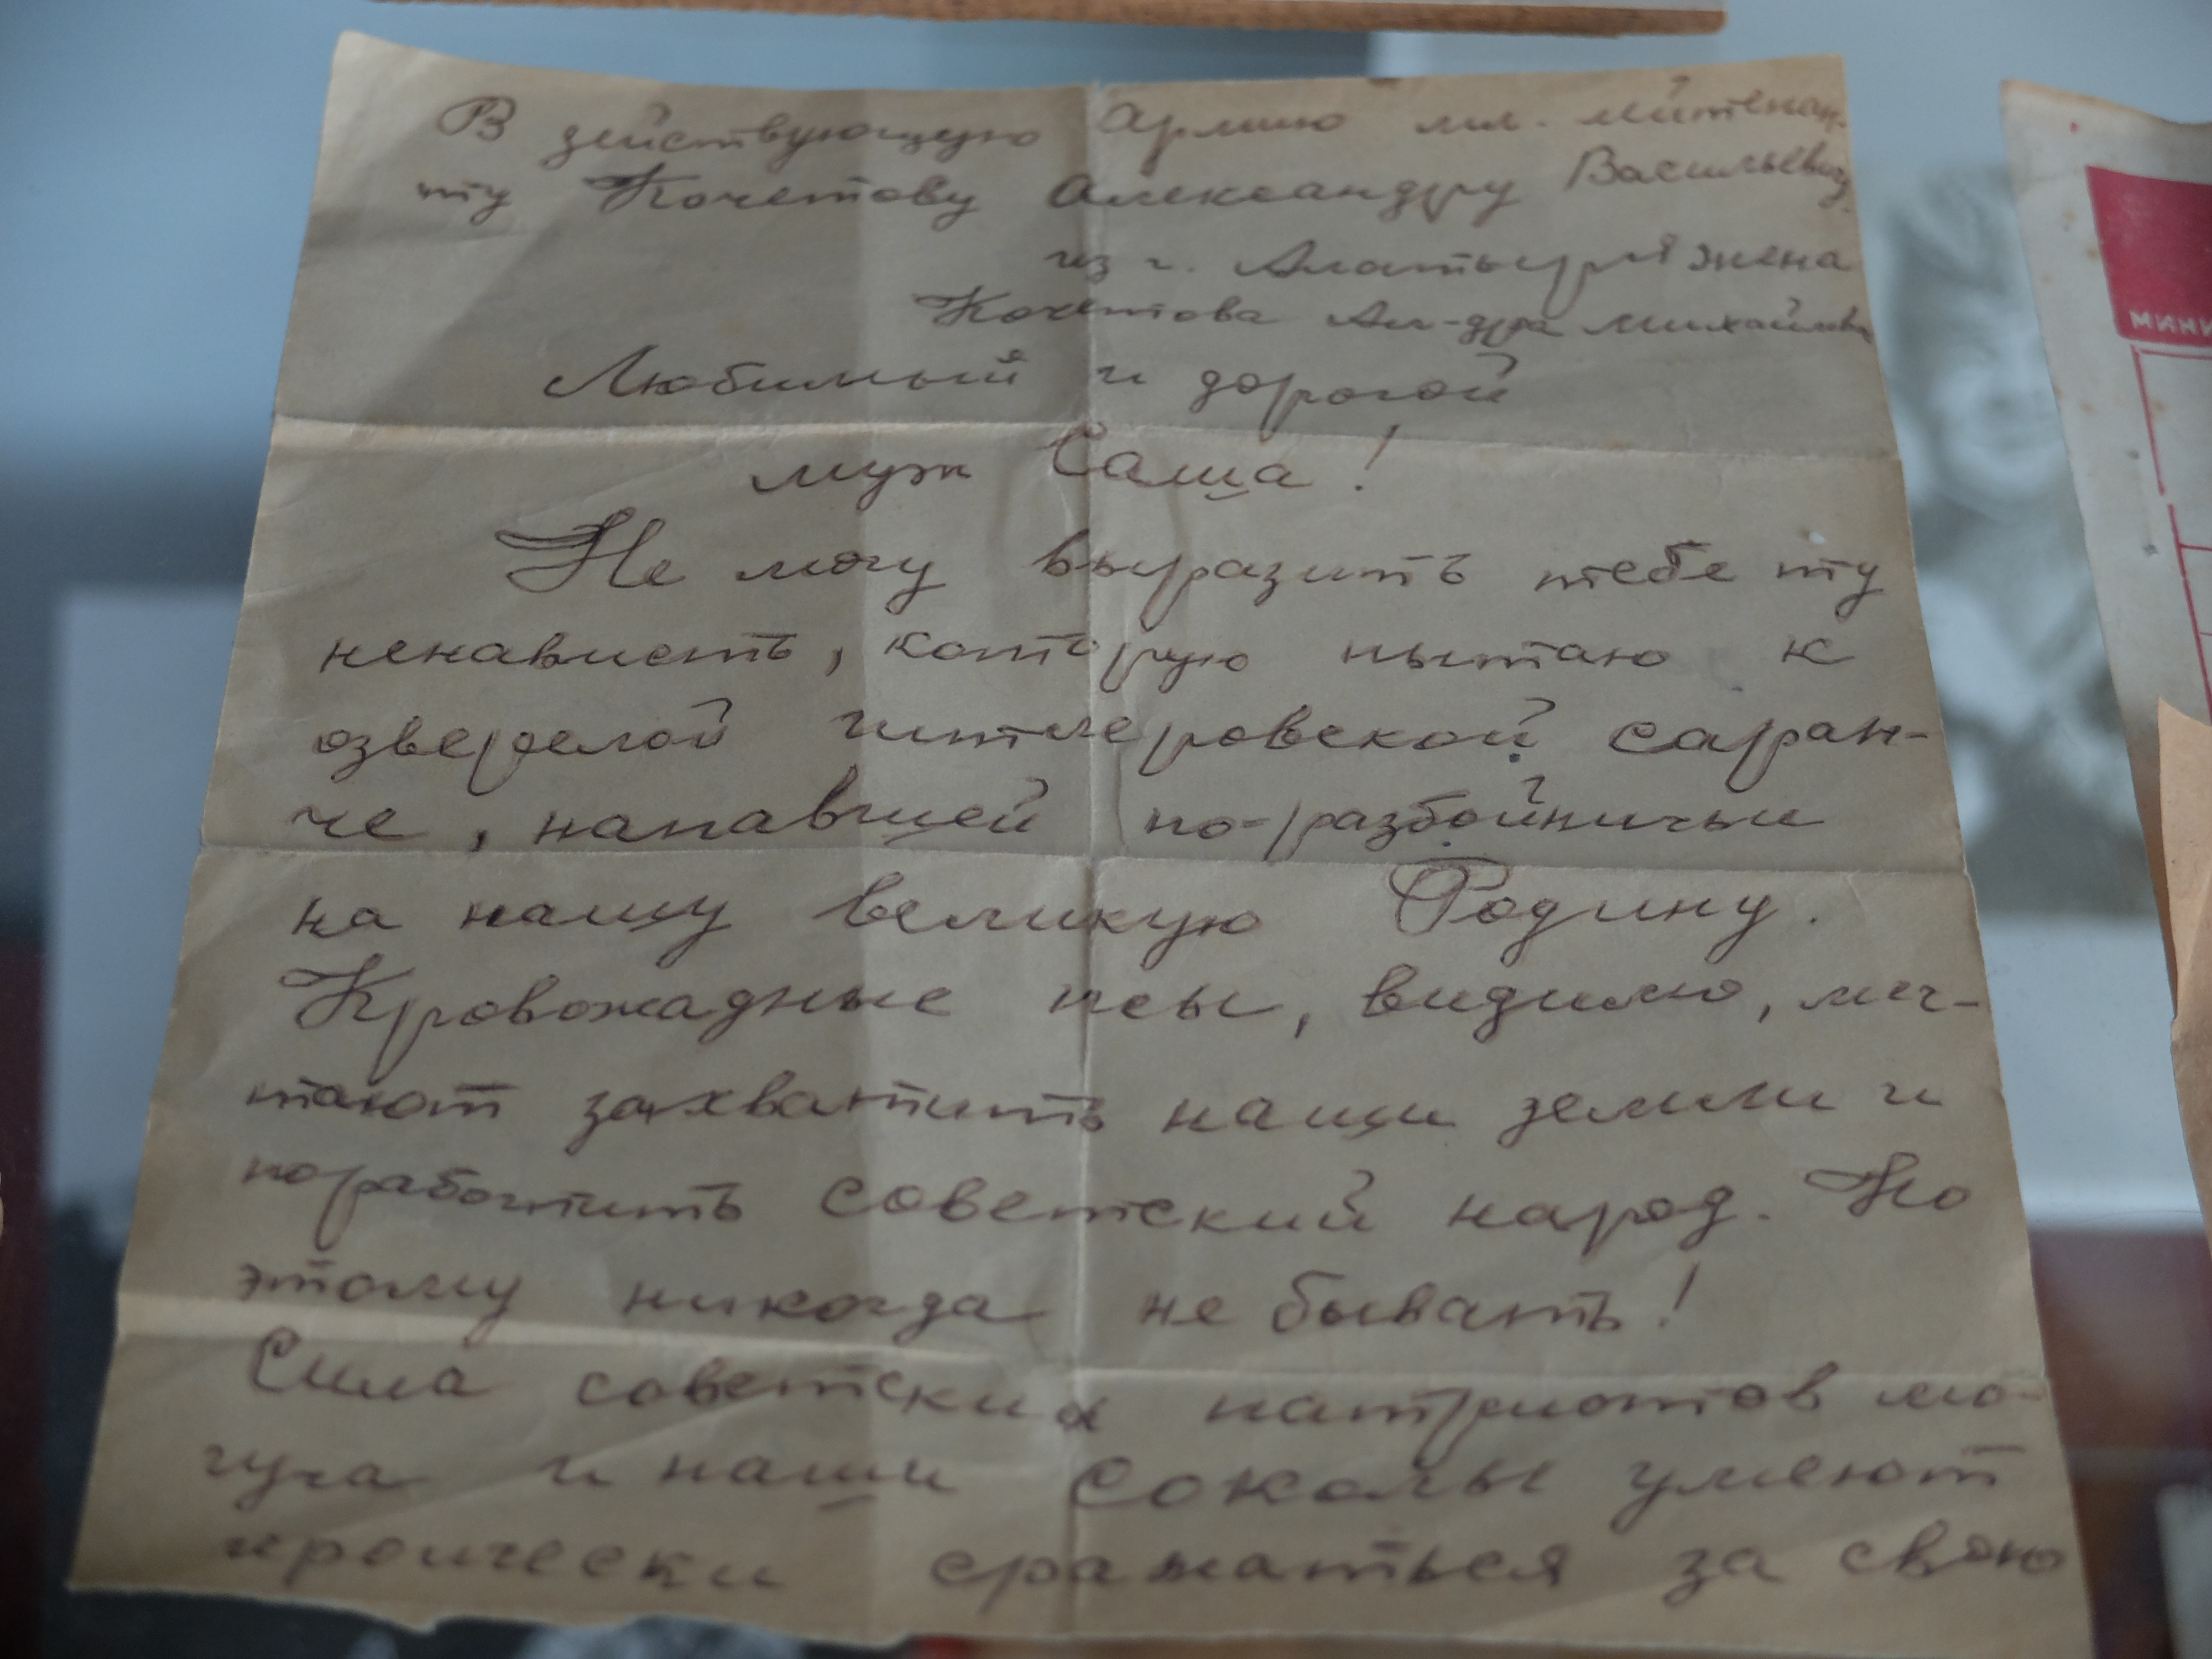 В действующую Армию мл. лйтенан-
ту Кочетову Александру Васильевичу
из г. Алатыря жена
Кочетова Ал-дра Михайловна
Любимый и дорогой
муж Саша!
Не могу выразить тебе ту
ненависть, которую пытаю к
озверелой гитлеровской саран-
че, напавшей по-разбойничьи
на нашу великую Родину.
Кровожадные псы, видимо, меч-
тают захватить наши земли и
поработить советский народ. Но
этому никогда не бывать!
Сила советских патриотов мо-
гуча и наши соколы умеют
героически сражаться за свою
МИНИ